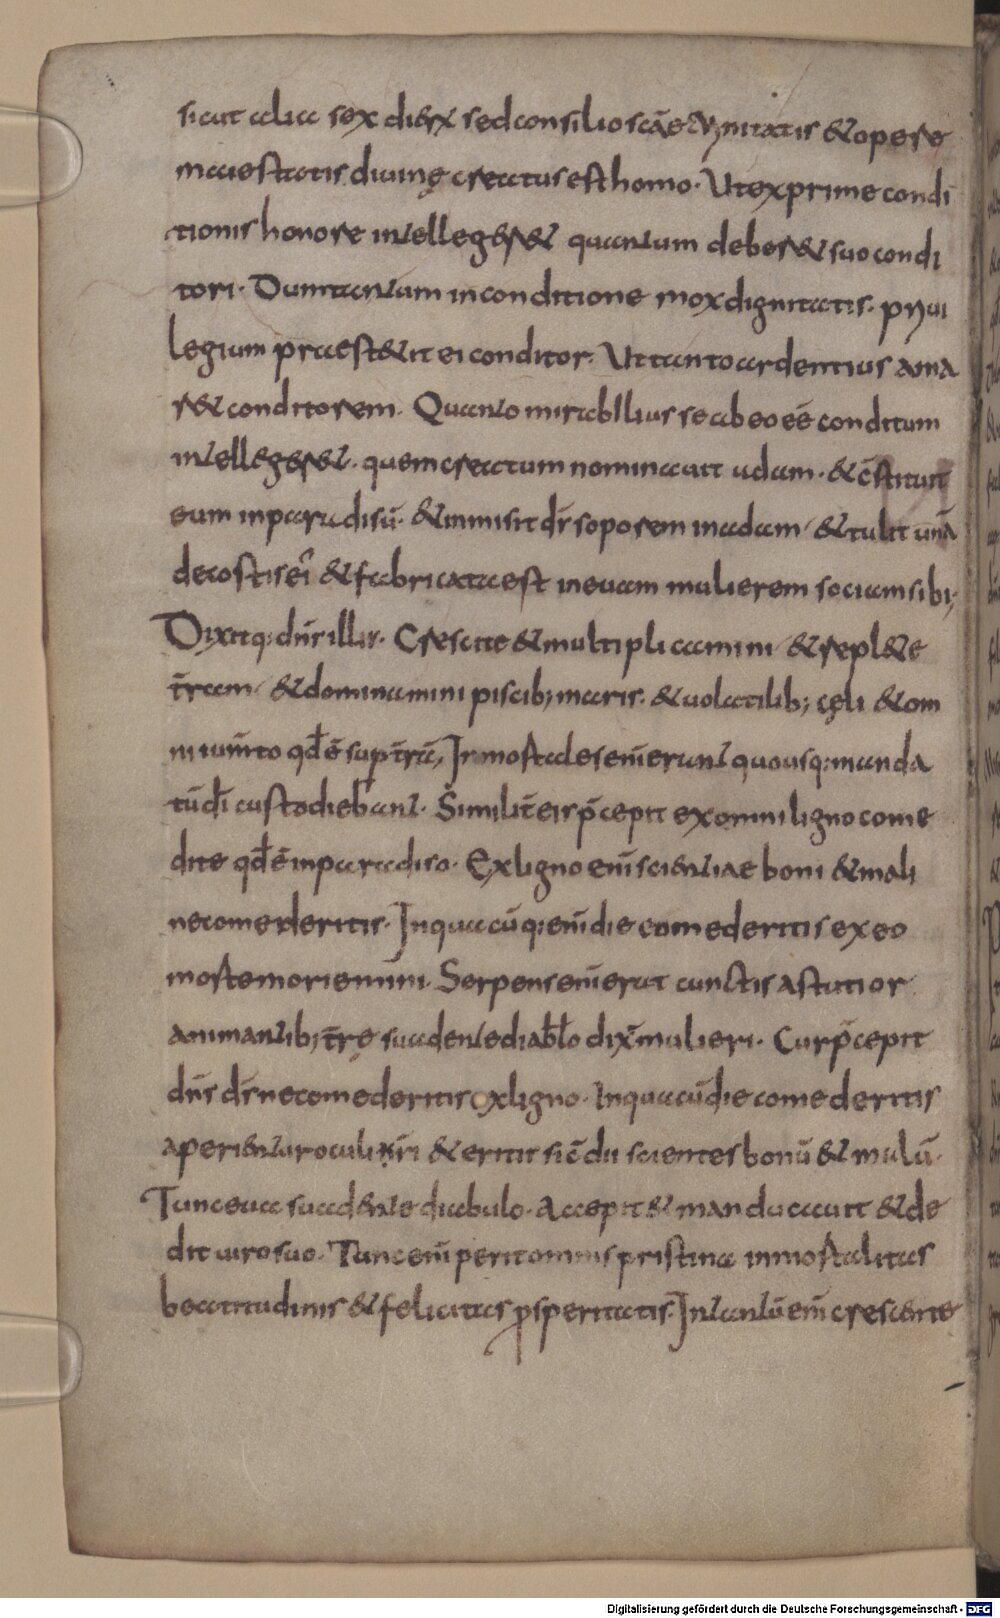 sicut alia sex dierum sed consilio scāe trinitatis & opere
maiestatis diuinę creatus est homo. Ut ex prime condi
tionis honore intelleger& quantum deber& suo condi
tori. Dum tantum in conditione mox dignitatis. priui
legium praestetit ei conditor. Ut tanto ardentius ama
r& conditorem. Quanto mirabilius se ab eo eē conditum
intelleger&. quem creatum nominauit adam. & cstituit
eum in paradisū. & inmisit d̄s soporem in adam & tulit unā
de costis ei & fabricata est in euam mulierem sociam sibi;
Dixitq: dn̄s illis. Crescite & multiplicamini & repl&e
t̄ram & dominamini piscib; maris. & uolatilib; cęli & om
ni iumto qd̄ ē sup t̄rā, Inmortales enī erant quousq: manda
tū dī custodiebant. Similit̄ eis p̄cepit ex omni ligno come
dite qd̄ ē in paradiso. Ex ligno enī scientiae boni & mali
ne comederitis. In quacūq: enī die comederitis ex eo
morte moriemini. Serpens enī erat cunctis astutior
animantib; t̄re suadente diablo dix̄ mulieri. Cur p̄cepit
dn̄s d̄s ne comederitis ex ligno. In quacū die comederitis
aperientur oculi ur̄i & eritis sic̄ dii scientes bonū & malū.
Tunc eua suadente diabulo. Accepit & manducauit & de
dit uiro suo. Tunc enī perit omnis pristina inmortalitas
beatitudinis & felicitas prosperitatis. In tantū enī crescente
Digitalisierung gefördert durch die Deutsche Forschungsgemeinschaft - DFG